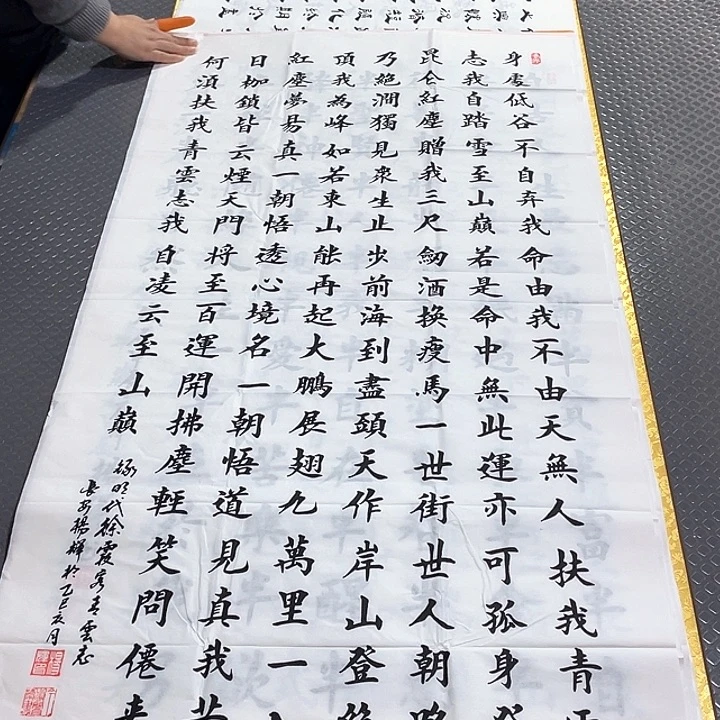 身處低谷不自弃我命由我不由天無人扶我青雲
志我自踏雪至山巔若是命中無此運亦可孤身登
昆仑紅塵贈我三尺劒酒換瘦馬一世街世人朝
乃絕澗獨見衆生止步前海到盡頭天作岸山登絕
頂我為峰如若東山能再起大鵬展翅九萬里一
紅塵夢易真一朝悟透心境名一朝悟道見真我昔
日枷鎖皆云煙天門将至百運開拂塵輕笑問僊来
何須扶我青雲志我自凌云至山巔
錄明代徐霞客青雲志
長安楊輝於乙巳月